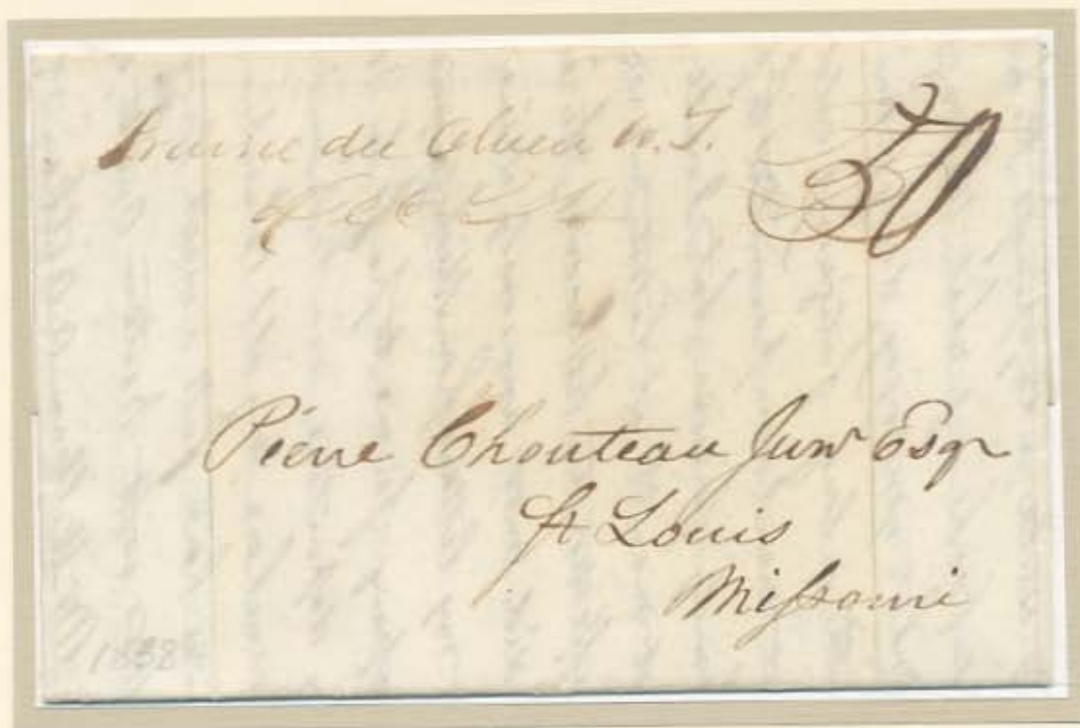 Prairie du Chien W. T.
50
Pierre Chouteau Junr Esqr
St Louis
Missouri
1838